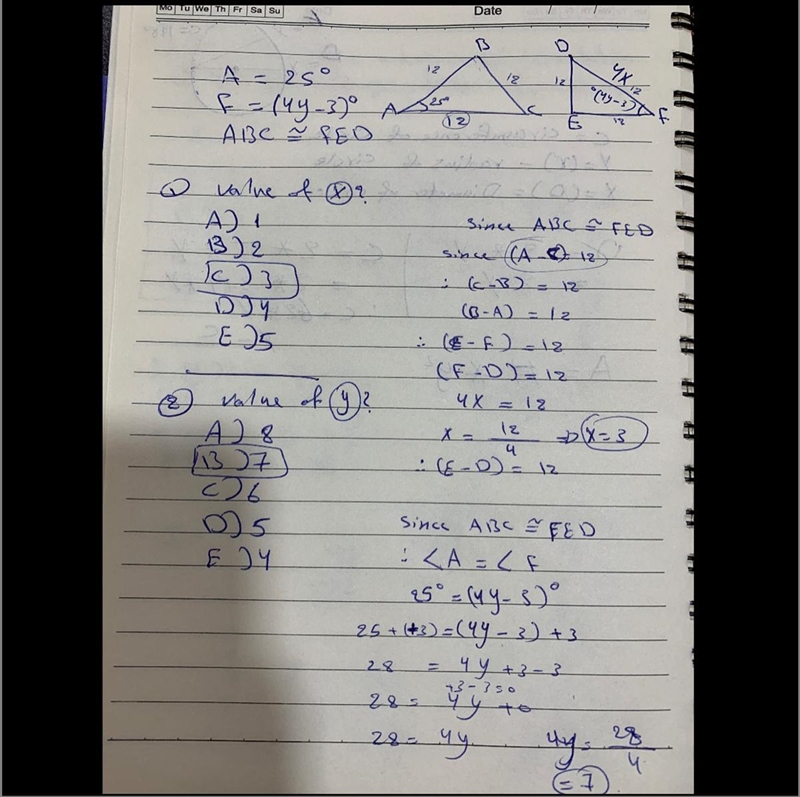 Mo Tu We Th Fr Sa Su
Date / /
A = 25°
F = (4y-3)°
ABC ≅ FED
B
12
12
A
25°
C
12
D
4x
12
12
°(4y-3)
E
12
F
① value of x?
A) 1
B) 2
C) 3
D) 4
E) 5
since ABC ≅ FED
since (A-C) = 12
∴ (C-B) = 12
(B-A) = 12
∴ (E-F) = 12
(F-D) = 12
4x = 12
x = 12/4 => x=3
∴ (E-D) = 12
② value of y?
A) 8
B) 7
C) 6
D) 5
E) 4
since ABC ≅ FED
∴ <A = < F
25° = (4y-3)°
25+(+3) = (4y-3)+3
28 = 4y+3-3
+3-3=0
28 = 4y+0
28 = 4y
4y = 28/4
= 7